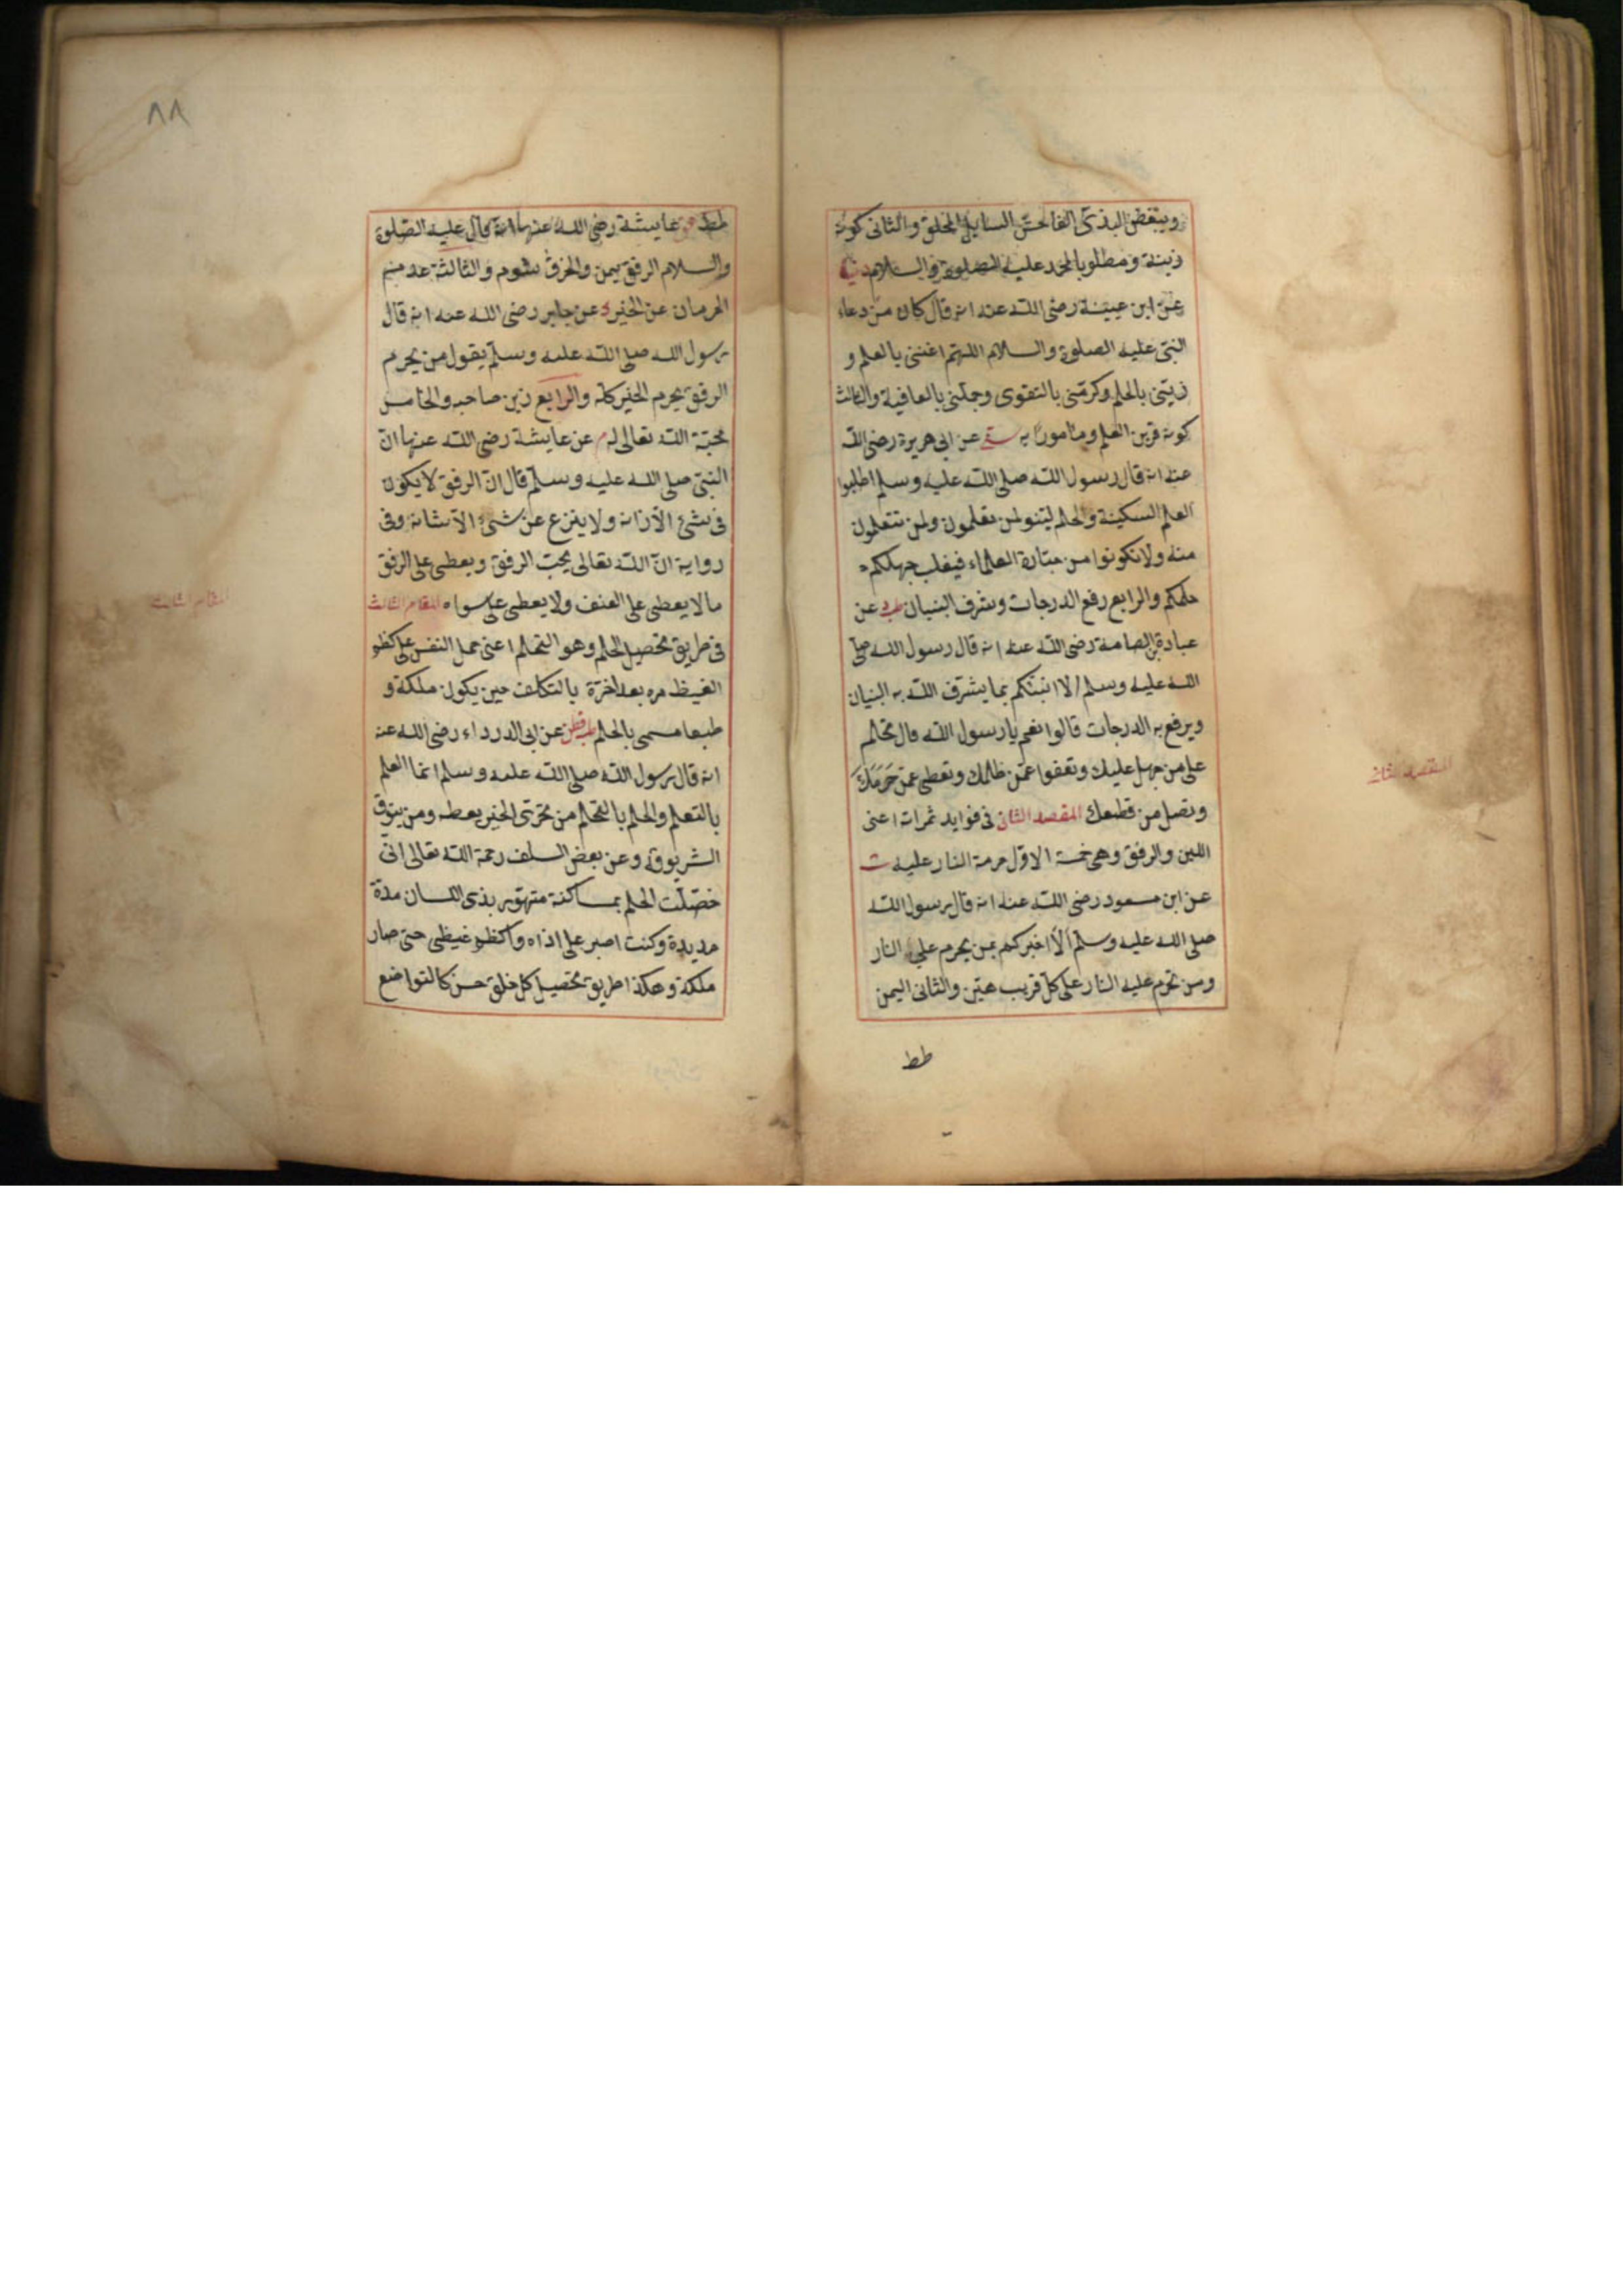 ويبغض البذى الفاحش السايل الملحق والثانى كونه
زينة ومطلوبا لمحمد عليه الصلوة والسلام دنيا
عن ابن عيينة رضى الله عنه انه قال كان من دعاء
النبى عليه الصلوة والسلام اللهم اغننى بالعلم و
زينى بالحلم وكرمنى بالتقوى وجملنى بالعافية والثالث
كونه قرين العلم ومامورا به سنى عن ابى هريرة رضى الله
عنه انه قال رسول الله صلى الله عليه وسلم اطلبوا
العلم السكينة والحلم لينو لمن تعلمون ولمن تتعلمون
منه ولا تكونوا من جبابرة العلماء فيغلب جهلكم
حلمكم والرابع رفع الدرجات وشرف البنيان طب عن
عبادة بن الصامة رضى الله عنه انه قال رسول الله صلى
الله عليه وسلم الا انبئكم بما يشرف الله به البنيان
ويرفع به الدرجات قالوا نعم يا رسول الله قال تحلم
على من جهل عليك وتعفوا عمن ظلمك وتعطى عمن حَرَمَكَ
وتصل من قطعك المقصد الثانى فى فوايد ثمراته اعنى
اللين والرفق وهى خمسة الاول حرمة النار عليه ت
عن ابن مسعود رضى الله عنه انه قال رسول الله
صلى الله عليه وسلم ألا اخبركم بمن يحرم على النار
ومن تحرم عليه النار على كل قريب هين والثانى اليمن
طط
المقصد الثانى
٨٨
طط عايشة رضى الله عنها انه قال عليه الصلوة
والسلام الرفق يمن والخرق شوم والثالثة عدم
الحرمان عن الخير د عن جابر رضى الله عنه انه قال
رسول الله صلى الله عليه وسلم يقول من يحرم
الرفق يحرم الخير كله والرابع زين صاحبه والخامس
محبة الله تعالى له م عن عايشة رضى الله عنها ان
النبى صلى الله عليه وسلم قال ان الرفق لا يكون
فى شئ الا زانه ولا ينزع عن شئ الا شانه وفى
رواية ان الله تعالى يحب الرفق ويعطى على الرفق
ما لا يعطى على العنف ولا يعطى على سواه المقام الثالث
فى طريق تحصيل الحلم وهو التحلم اعنى حمل النفس على كظم
الغيظ مره بعد اخرة بالتكلف حين يكون ملكة و
طبعا مسمى بالحلم طب قطن عن ابى الدرداء رضى الله عنه
انه قال رسول الله صلى الله عليه وسلم انما العلم
بالتعلم والحلم بالتحلم من تحرى الخير يعطه ومن يتوق
الشر يوقه وعن بعض السلف رحمة الله تعالى انى
حصلت الحلم بمساكنة متهور بذى اللسان مدة
مديدة وكنت اصبر على اذاه واكظم غيظى حتى صار
ملكة وهكذا طريق تحصيل كل خلق حسن كالتواضع
المقام الثالث